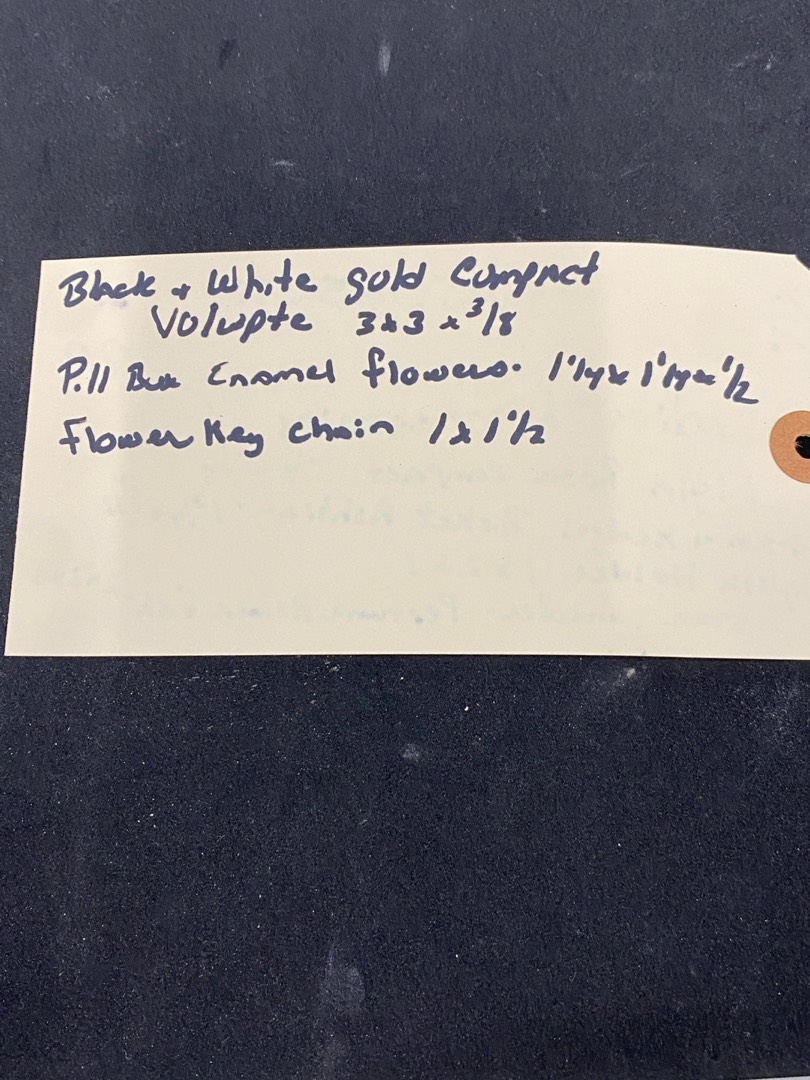 Black + White gold Compact
Volupte 3x3 x 3/8
Pill Box Enamel flowers. 1 1/4 x 1 1/4 x 1/2
flower Key chain 1 x 1 1/2